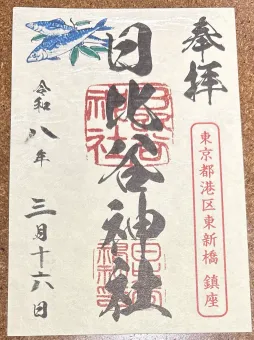 奉拝
東京都港区東新橋 鎮座
日比谷神社
令和八年
三月十六日